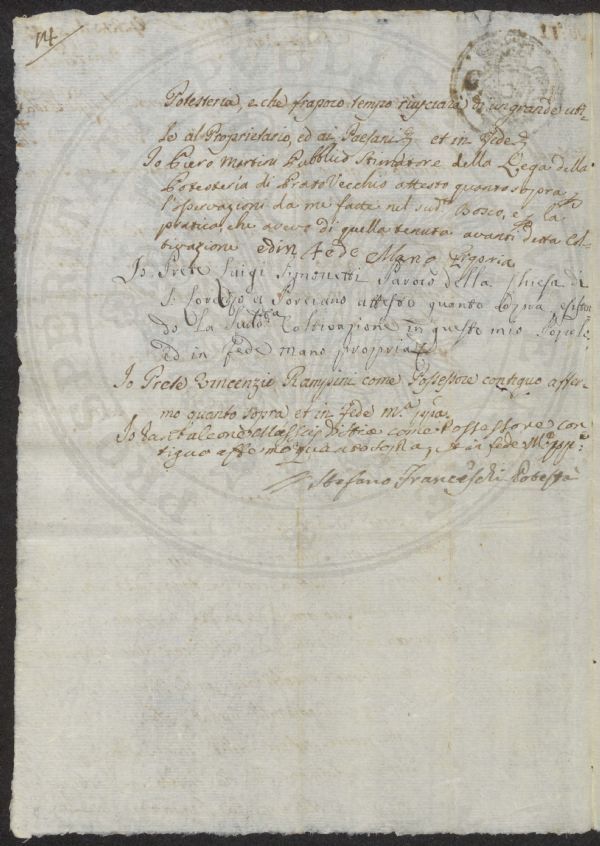 14
Potesteria, e che frapoco tempo riusciara di un grande uti-
le al Proprietario, ed ai Paesani et in fede
Io Piero Martini Pubblico Stimatore della Lega della
Potesteria di Prato Vecchio attesto quanto sopra
l'osservazioni da me fatte nel sud.o Bosco, e la
pratica, che avevo di quella tenuta avanti detta Col-
tivazione ed in fede Mano
Io Prete Luigi Simonetti Paroco della Chiesa di
S. Lorenzo a Porciano attesto quanto sopra,
do la Sud.a Coltivazione in questo mio Popolo,
ed in fede mano propria
Io Prete Vincenzio Rampini come Possessore contiguo affer-
mo quanto sopra et in fede m.o
Io come Possessore con-
tiguo affermo quanto sopra, et in fede
Stefano Franceschi Potestà